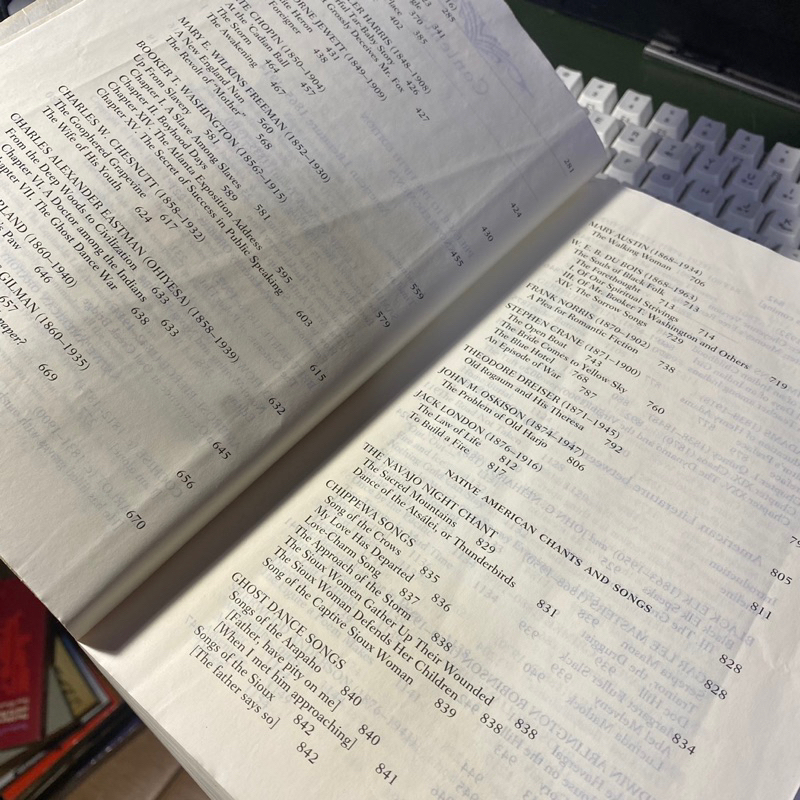 HARRIS (1848–1908) 424
Tar-Baby Story 426
Deceives Mr. Fox 427
JEWETT (1849–1909) 430
Heron 431
Foreigner 438
CHOPIN (1850–1904) 455
At the 'Cadian Ball 457
The Storm 464
The Awakening 467
MARY E. WILKINS FREEMAN (1852–1930) 559
A New England Nun 560
The Revolt of "Mother" 568
BOOKER T. WASHINGTON (1856?–1915) 579
Up From Slavery 581
Chapter I. A Slave Among Slaves 581
Chapter II. Boyhood Days 589
Chapter XIV. The Atlanta Exposition Address 595
Chapter XV. The Secret of Success in Public Speaking 603
CHARLES W. CHESNUTT (1858–1932) 615
The Goophered Grapevine 617
The Wife of His Youth 624
CHARLES ALEXANDER EASTMAN (OHIYESA) (1858–1939) 632
From the Deep Woods to Civilization 633
Chapter VI. A Doctor among the Indians 633
Chapter VII. The Ghost Dance War 638
(1860–1940) 645
Paw 646
GILMAN (1860–1935) 656
657
669
670
MARY AUSTIN (1868–1934)
The Walking Woman 706
W. E. B. DU BOIS (1868–1963)
The Souls of Black Folk 713
The Forethought 713
I. Of Our Spiritual Strivings 714
III. Of Mr. Booker T. Washington and Others 719
XIV. The Sorrow Songs 729
FRANK NORRIS (1870–1902)
A Plea for Romantic Fiction 738
STEPHEN CRANE (1871–1900)
The Open Boat 743
The Bride Comes to Yellow Sky 760
The Blue Hotel 768
An Episode of War 787
THEODORE DREISER (1871–1945)
Old Rogaum and His Theresa 792
JOHN M. OSKISON (1874–1947) 805
The Problem of Old Harjo 806
JACK LONDON (1876–1916) 811
The Law of Life 812
To Build a Fire 817
NATIVE AMERICAN CHANTS AND SONGS 828
THE NAVAJO NIGHT CHANT 828
The Sacred Mountains 829
Dance of the Atsálei, or Thunderbirds 831
CHIPPEWA SONGS 834
Song of the Crows 835
My Love Has Departed 836
Love-Charm Song 837
The Approach of the Storm 838
The Sioux Women Gather Up Their Wounded 838
The Sioux Woman Defends Her Children 838
Song of the Captive Sioux Woman 839
GHOST DANCE SONGS
Songs of the Arapaho 840
[Father, have pity on me] 840
[When I met him approaching] 841
Songs of the Sioux 842
[The father says so] 842